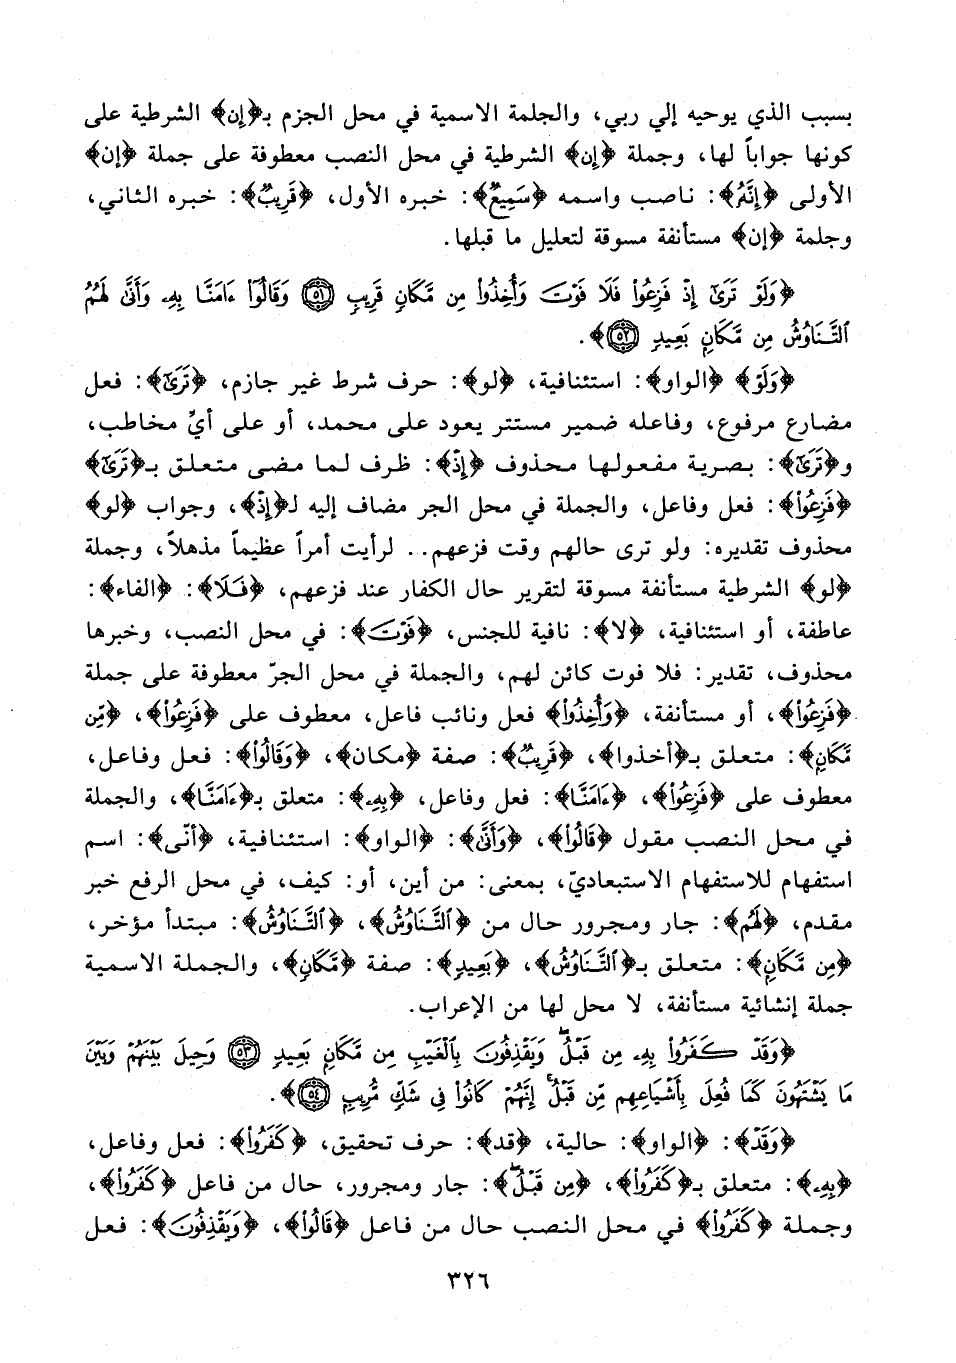 بسبب الذي يوحيه إلي ربي، والجلمة الاسمية في محل الجزم بـ﴿إن﴾ الشرطية على
كونها جواباً لها، وجملة ﴿إن﴾ الشرطية في محل النصب معطوفة على جملة ﴿إن﴾
الأولى ﴿إِنَّهُ﴾: ناصب واسمه ﴿سَمِيعٌ﴾: خبره الأول، ﴿قَرِيبٌ﴾: خبره الثاني،
وجلمة ﴿إن﴾ مستأنفة مسوقة لتعليل ما قبلها.
﴿وَلَوْ تَرَىٰٓ إِذْ فَزِعُوا۟ فَلَا فَوْتَ وَأُخِذُوا۟ مِن مَّكَانٍ قَرِيبٍ ٥١ وَقَالُوٓا۟ ءَامَنَّا بِهِۦ وَأَنَّىٰ لَهُمُ
ٱلتَّنَاوُشُ مِن مَّكَانٍۭ بَعِيدٍ ٥٢﴾.
﴿وَلَوْ﴾ ﴿الواو﴾: استئنافية، ﴿لو﴾: حرف شرط غير جازم، ﴿تَرَىٰٓ﴾: فعل
مضارع مرفوع، وفاعله ضمير مستتر يعود على محمد، أو على أيِّ مخاطب،
و﴿تَرَىٰٓ﴾: بصرية مفعولها محذوف ﴿إِذْ﴾: ظرف لما مضى متعلق بـ﴿تَرَىٰٓ﴾
﴿فَزِعُوا۟﴾: فعل وفاعل، والجملة في محل الجر مضاف إليه لـ﴿إِذْ﴾، وجواب ﴿لو﴾
محذوف تقديره: ولو ترى حالهم وقت فزعهم.. لرأيت أمراً عظيماً مذهلاً، وجملة
﴿لو﴾ الشرطية مستأنفة مسوقة لتقرير حال الكفار عند فزعهم، ﴿فَلَا﴾: ﴿الفاء﴾:
عاطفة، أو استئنافية، ﴿لا﴾: نافية للجنس، ﴿فَوْتَ﴾: في محل النصب، وخبرها
محذوف، تقدير: فلا فوت كائن لهم، والجملة في محل الجرّ معطوفة على جملة
﴿فَزِعُوا۟﴾، أو مستأنفة، ﴿وَأُخِذُوا۟﴾ فعل ونائب فاعل، معطوف على ﴿فَزِعُوا۟﴾، ﴿مِن
مَّكَانٍ﴾: متعلق بـ﴿أخذوا﴾، ﴿قَرِيبٌ﴾: صفة ﴿مكان﴾، ﴿وَقَالُوٓا۟﴾: فعل وفاعل،
معطوف على ﴿فَزِعُوا۟﴾، ﴿ءَامَنَّا﴾: فعل وفاعل، ﴿بِهِۦ﴾: متعلق بـ﴿ءَامَنَّا﴾، والجملة
في محل النصب مقول ﴿قَالُوا۟﴾، ﴿وَأَنَّىٰ﴾: ﴿الواو﴾: استئنافية، ﴿أنّى﴾: اسم
استفهام للاستفهام الاستبعاديّ، بمعنى: من أين، أو: كيف، في محل الرفع خبر
مقدم، ﴿لَهُم﴾: جار ومجرور حال من ﴿ٱلتَّنَاوُشُ﴾، ﴿ٱلتَّنَاوُشُ﴾: مبتدأ مؤخر،
﴿مِن مَّكَانٍ﴾: متعلق بـ﴿ٱلتَّنَاوُشُ﴾، ﴿بَعِيدٍ﴾: صفة ﴿مَّكَانٍ﴾، والجملة الاسمية
جملة إنشائية مستأنفة، لا محل لها من الإعراب.
﴿وَقَدْ كَفَرُوا۟ بِهِۦ مِن قَبْلُ ۖ وَيَقْذِفُونَ بِٱلْغَيْبِ مِن مَّكَانٍۭ بَعِيدٍ ٥٣ وَحِيلَ بَيْنَهُمْ وَبَيْنَ
مَا يَشْتَهُونَ كَمَا فُعِلَ بِأَشْيَاعِهِم مِّن قَبْلُ ۚ إِنَّهُمْ كَانُوا۟ فِى شَكٍّ مُّرِيبٍۭ ٥٤﴾.
﴿وَقَدْ﴾: ﴿الواو﴾: حالية، ﴿قد﴾: حرف تحقيق، ﴿كَفَرُوا۟﴾: فعل وفاعل،
﴿بِهِۦ﴾: متعلق بـ﴿كَفَرُوا۟﴾، ﴿مِن قَبْلُ ۖ﴾: جار ومجرور، حال من فاعل ﴿كَفَرُوا۟﴾،
وجملة ﴿كَفَرُوا۟﴾ في محل النصب حال من فاعل ﴿قَالُوا۟﴾، ﴿وَيَقْذِفُونَ﴾: فعل
٣٢٦